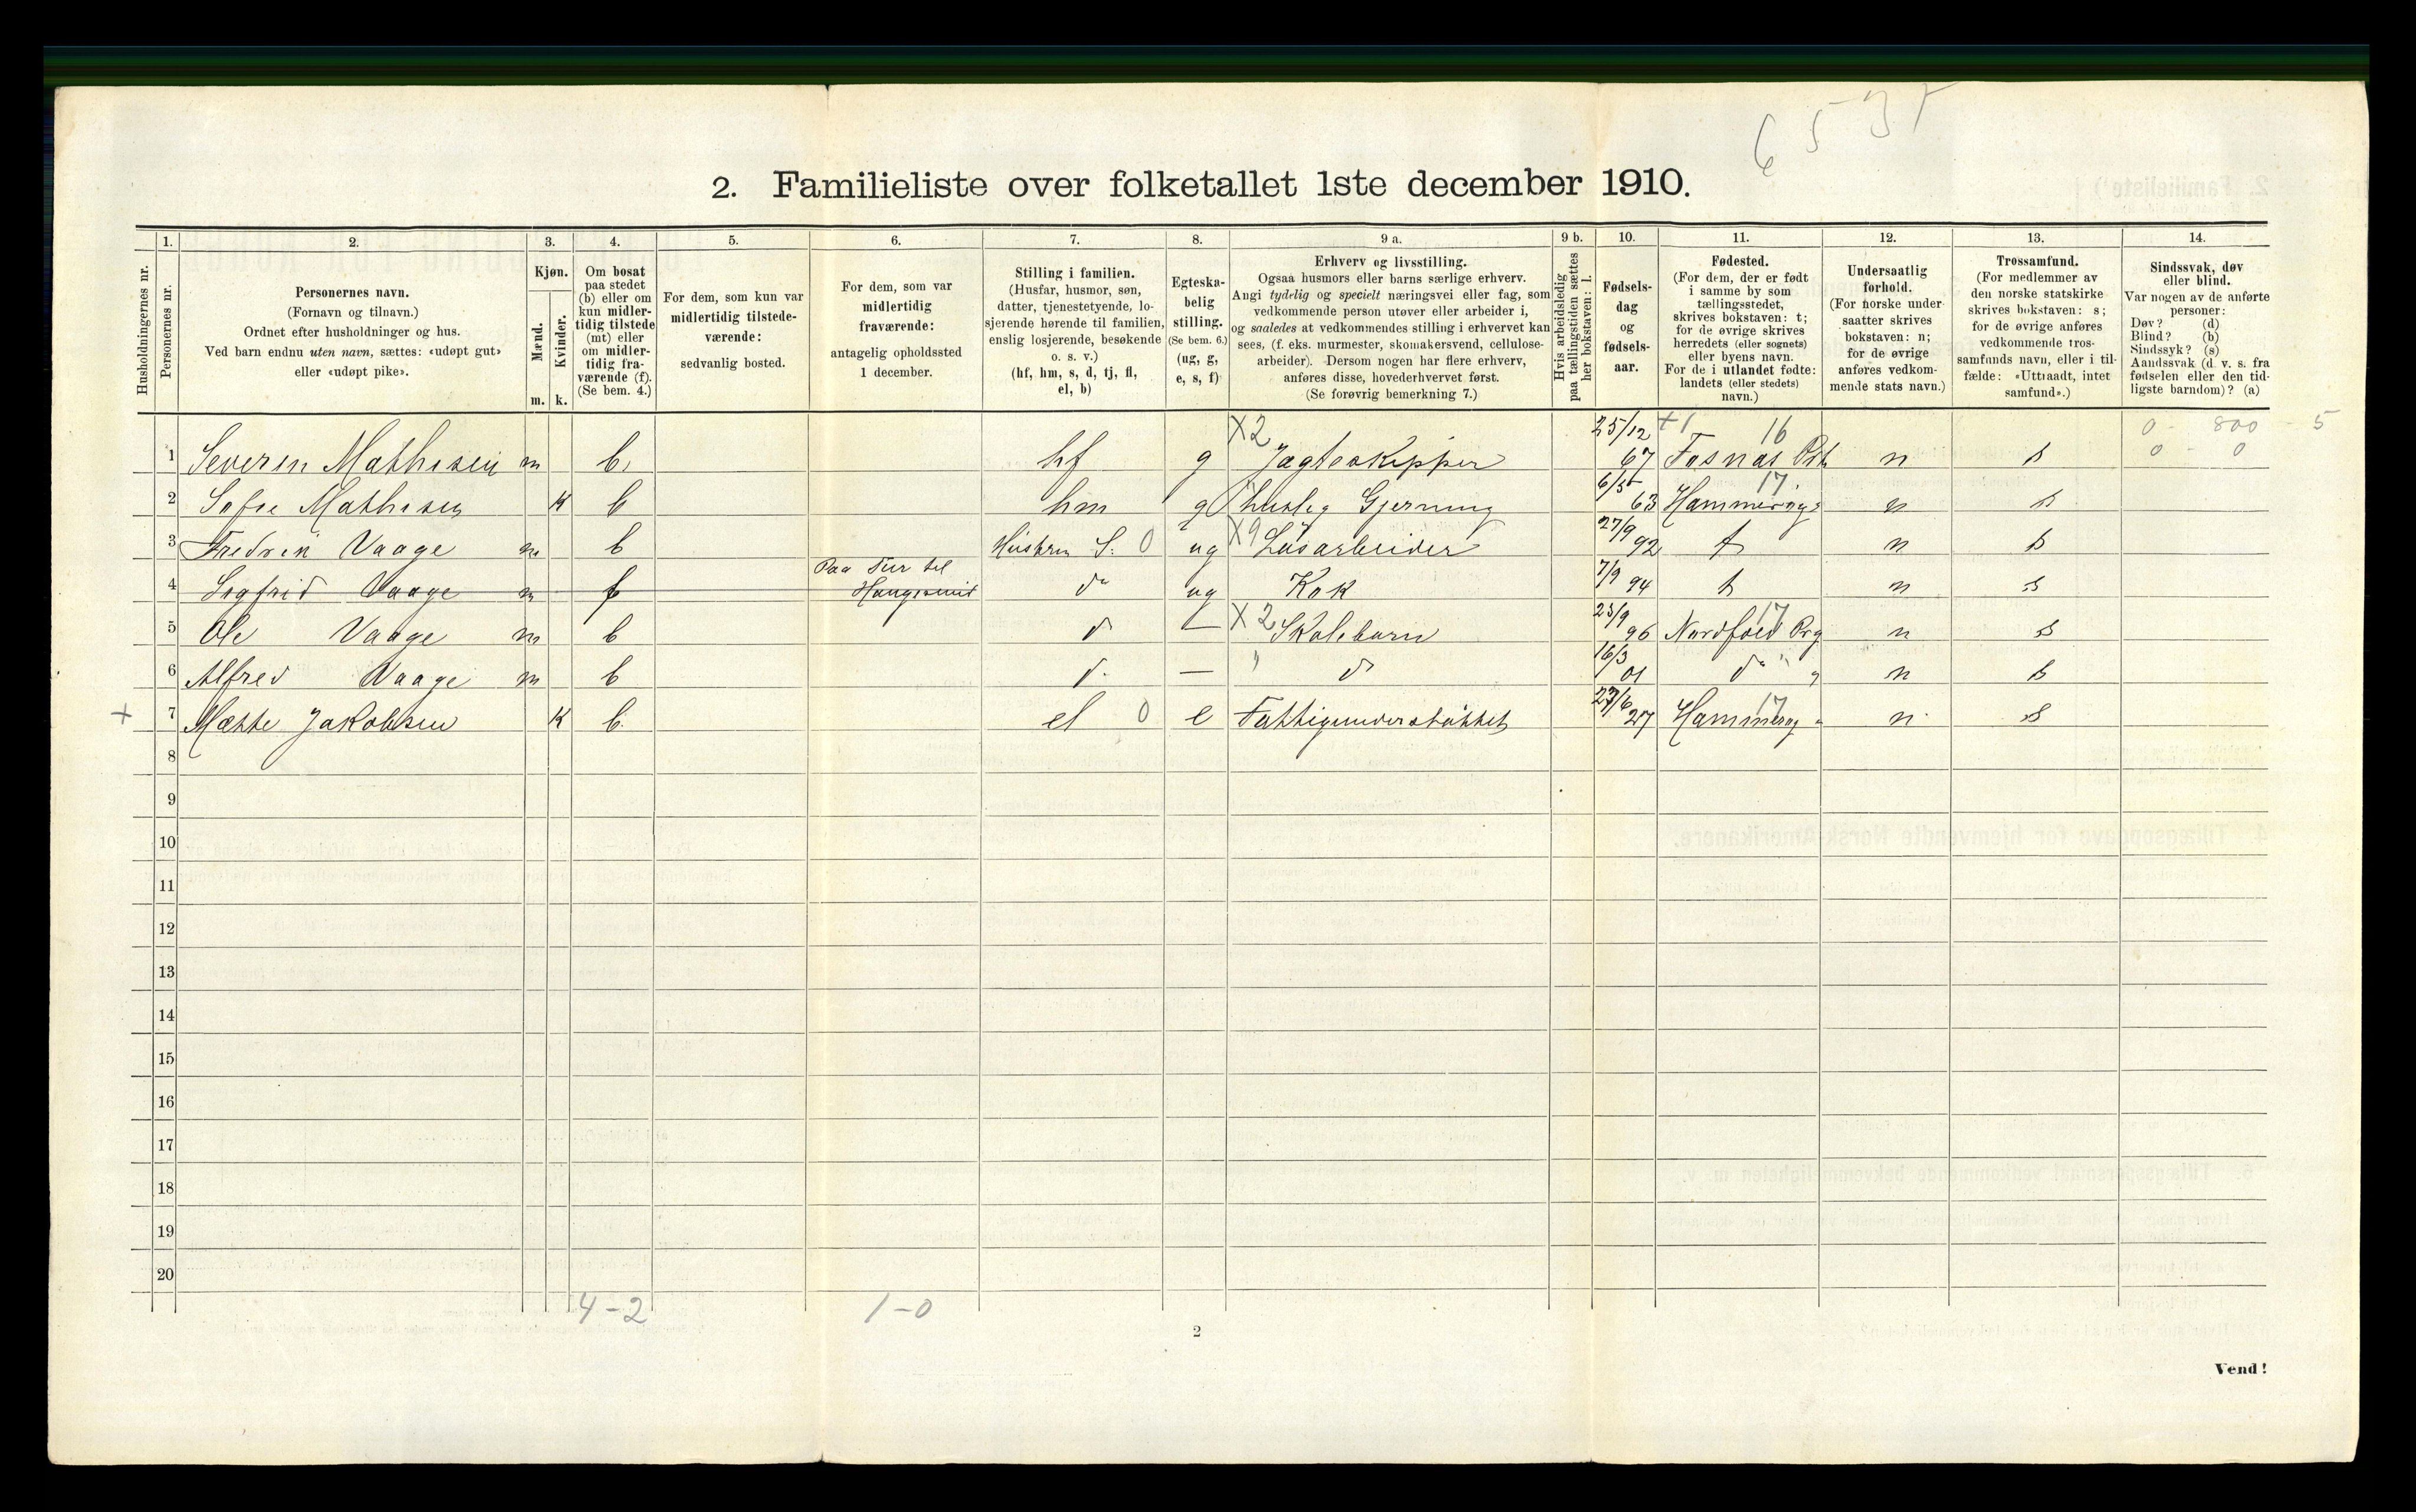 6 5 37
2. Familieliste over folketallet 1ste december 1910.
Husholdningernes nr.
1. Personernes nr.
2. Personernes navn. (Fornavn og tilnavn.) Ordnet efter husholdninger og hus. Ved barn endnu uten navn, sættes: «udøpt gut» eller «udøpt pike».
3. Kjøn. Mænd. m. Kvinder. k.
4. Om bosat paa stedet (b) eller om kun midlertidig tilstede (mt) eller om midlertidig fraværende (f). (Se bem. 4.)
5. For dem, som kun var midlertidig tilstedeværende: sedvanlig bosted.
6. For dem, som var midlertidig fraværende: antagelig opholdssted 1 december.
7. Stilling i familien. (Husfar, husmor, søn, datter, tjenestetyende, losjerende hørende til familien, enslig losjerende, besøkende o. s. v.) (hf, hm, s, d, tj, fl, el, b)
8. Egteskabelig stilling. (Se bem. 6.) (ug, g, e, s, f)
9 a. Erhverv og livsstilling. Ogsaa husmors eller barns særlige erhverv. Angi tydelig og specielt næringsvei eller fag, som vedkommende person utøver eller arbeider i, og saaledes at vedkommendes stilling i erhvervet kan sees, (f. eks. murmester, skomakersvend, cellulosearbeider). Dersom nogen har flere erhverv, anføres disse, hovederhvervet først. (Se forøvrig bemerkning 7.)
9 b. Hvis arbeidsledig paa tællingstiden sættes her bokstaven: l.
10. Fødselsdag og fødselsaar.
11. Fødested. (For dem, der er født i samme by som tællingsstedet, skrives bokstaven: t; for de øvrige skrives herredets (eller sognets) eller byens navn. For de i utlandet fødte: landets (eller stedets) navn.)
12. Undersaatlig forhold. (For norske undersaatter skrives bokstaven: n; for de øvrige anføres vedkommende stats navn.)
13. Trossamfund. (For medlemmer av den norske statskirke skrives bokstaven: s; for de øvrige anføres vedkommende trossamfunds navn, eller i tilfælde: «Uttraadt, intet samfund».)
14. Sindssvak, døv eller blind. Var nogen av de anførte personer: Døv? (d) Blind? (b) Sindssyk? (s) Aandssvak (d. v. s. fra fødselen eller den tidligste barndom)? (a)
1 Severin Mathisen m b hf g X2 Jagteskipper 25/12 67 +1 16 Fosnas n s 0 - 800 - 5
0 - 0
2 Sofie Mathisen k b hm g huslig Gjerning 6/5 63 17 n s
3 Fredrik Vaage m b Hustru S. 0 ug X9 Løsarbeider 27/9 92 t n s
4 Sigfrid Vaage m f Paa Tur til Haugesund do ug Kok 7/9 94 t n s
5 Ole Vaage m b d — X2 Skolebarn 23/9 96 17 Nordfold n s
6 Alfred Vaage m b d — " d 16/3 01 do " n s
+ 7 Mætte Jakobsen k b el 0 e Fattigunderstøttet 27/6 27 17 n s
8
9
10
11
12
13
14
15
16
17
18
19
20
4-2 1-0
2
Vend!